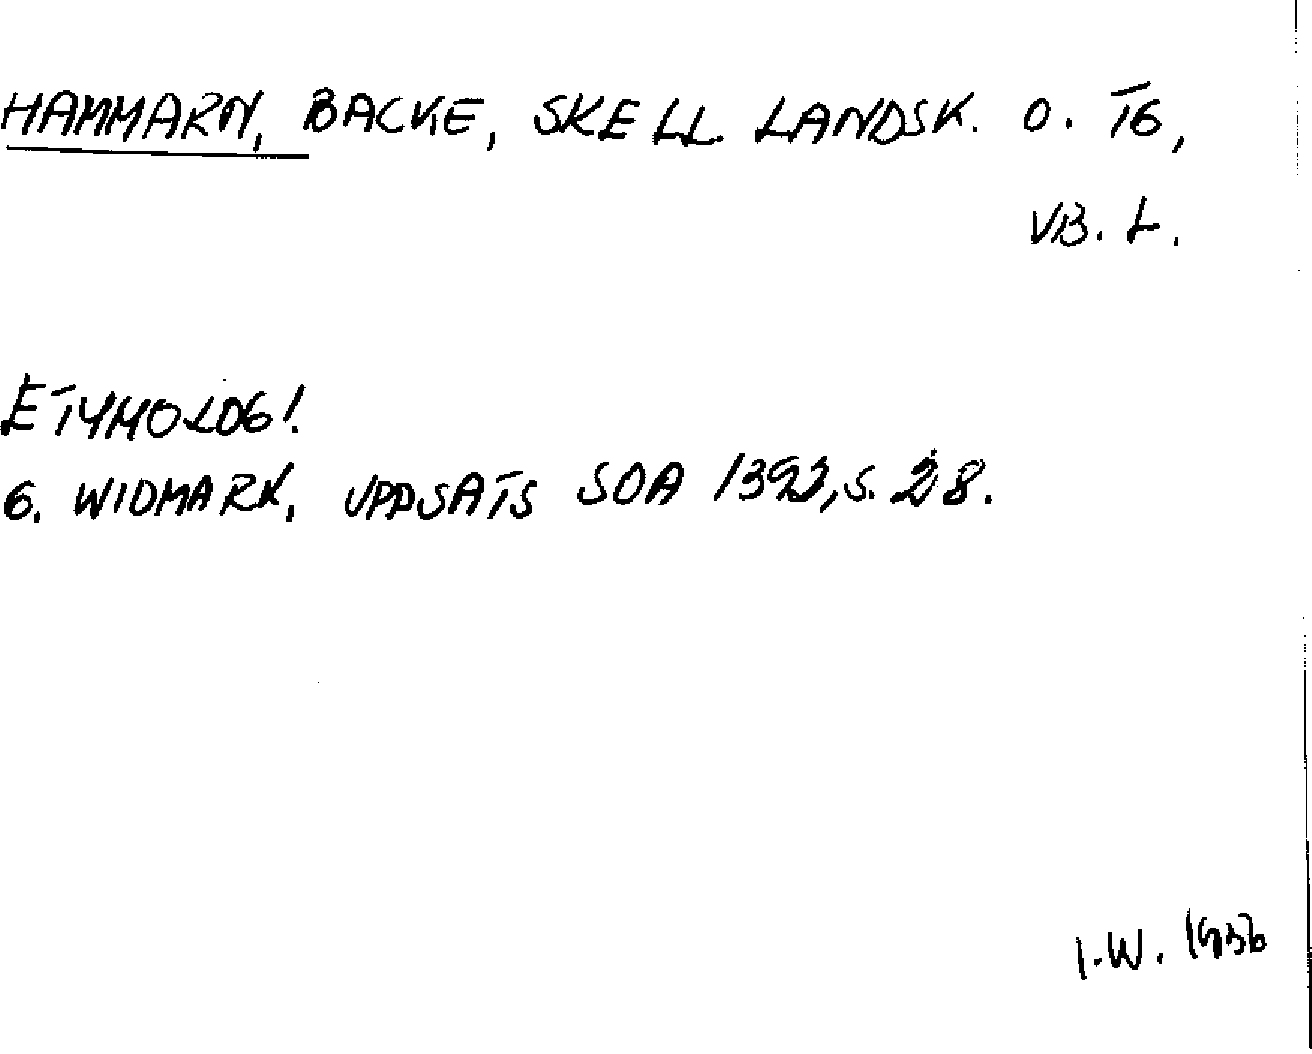 HAMMARN, BACKE, SKELL. LANDSK. O. TG,
VB. L.
ETYMOLOGI.
G. WIDMARK, UPPSATS SOA 1392, S. 28.
I.W. 1956